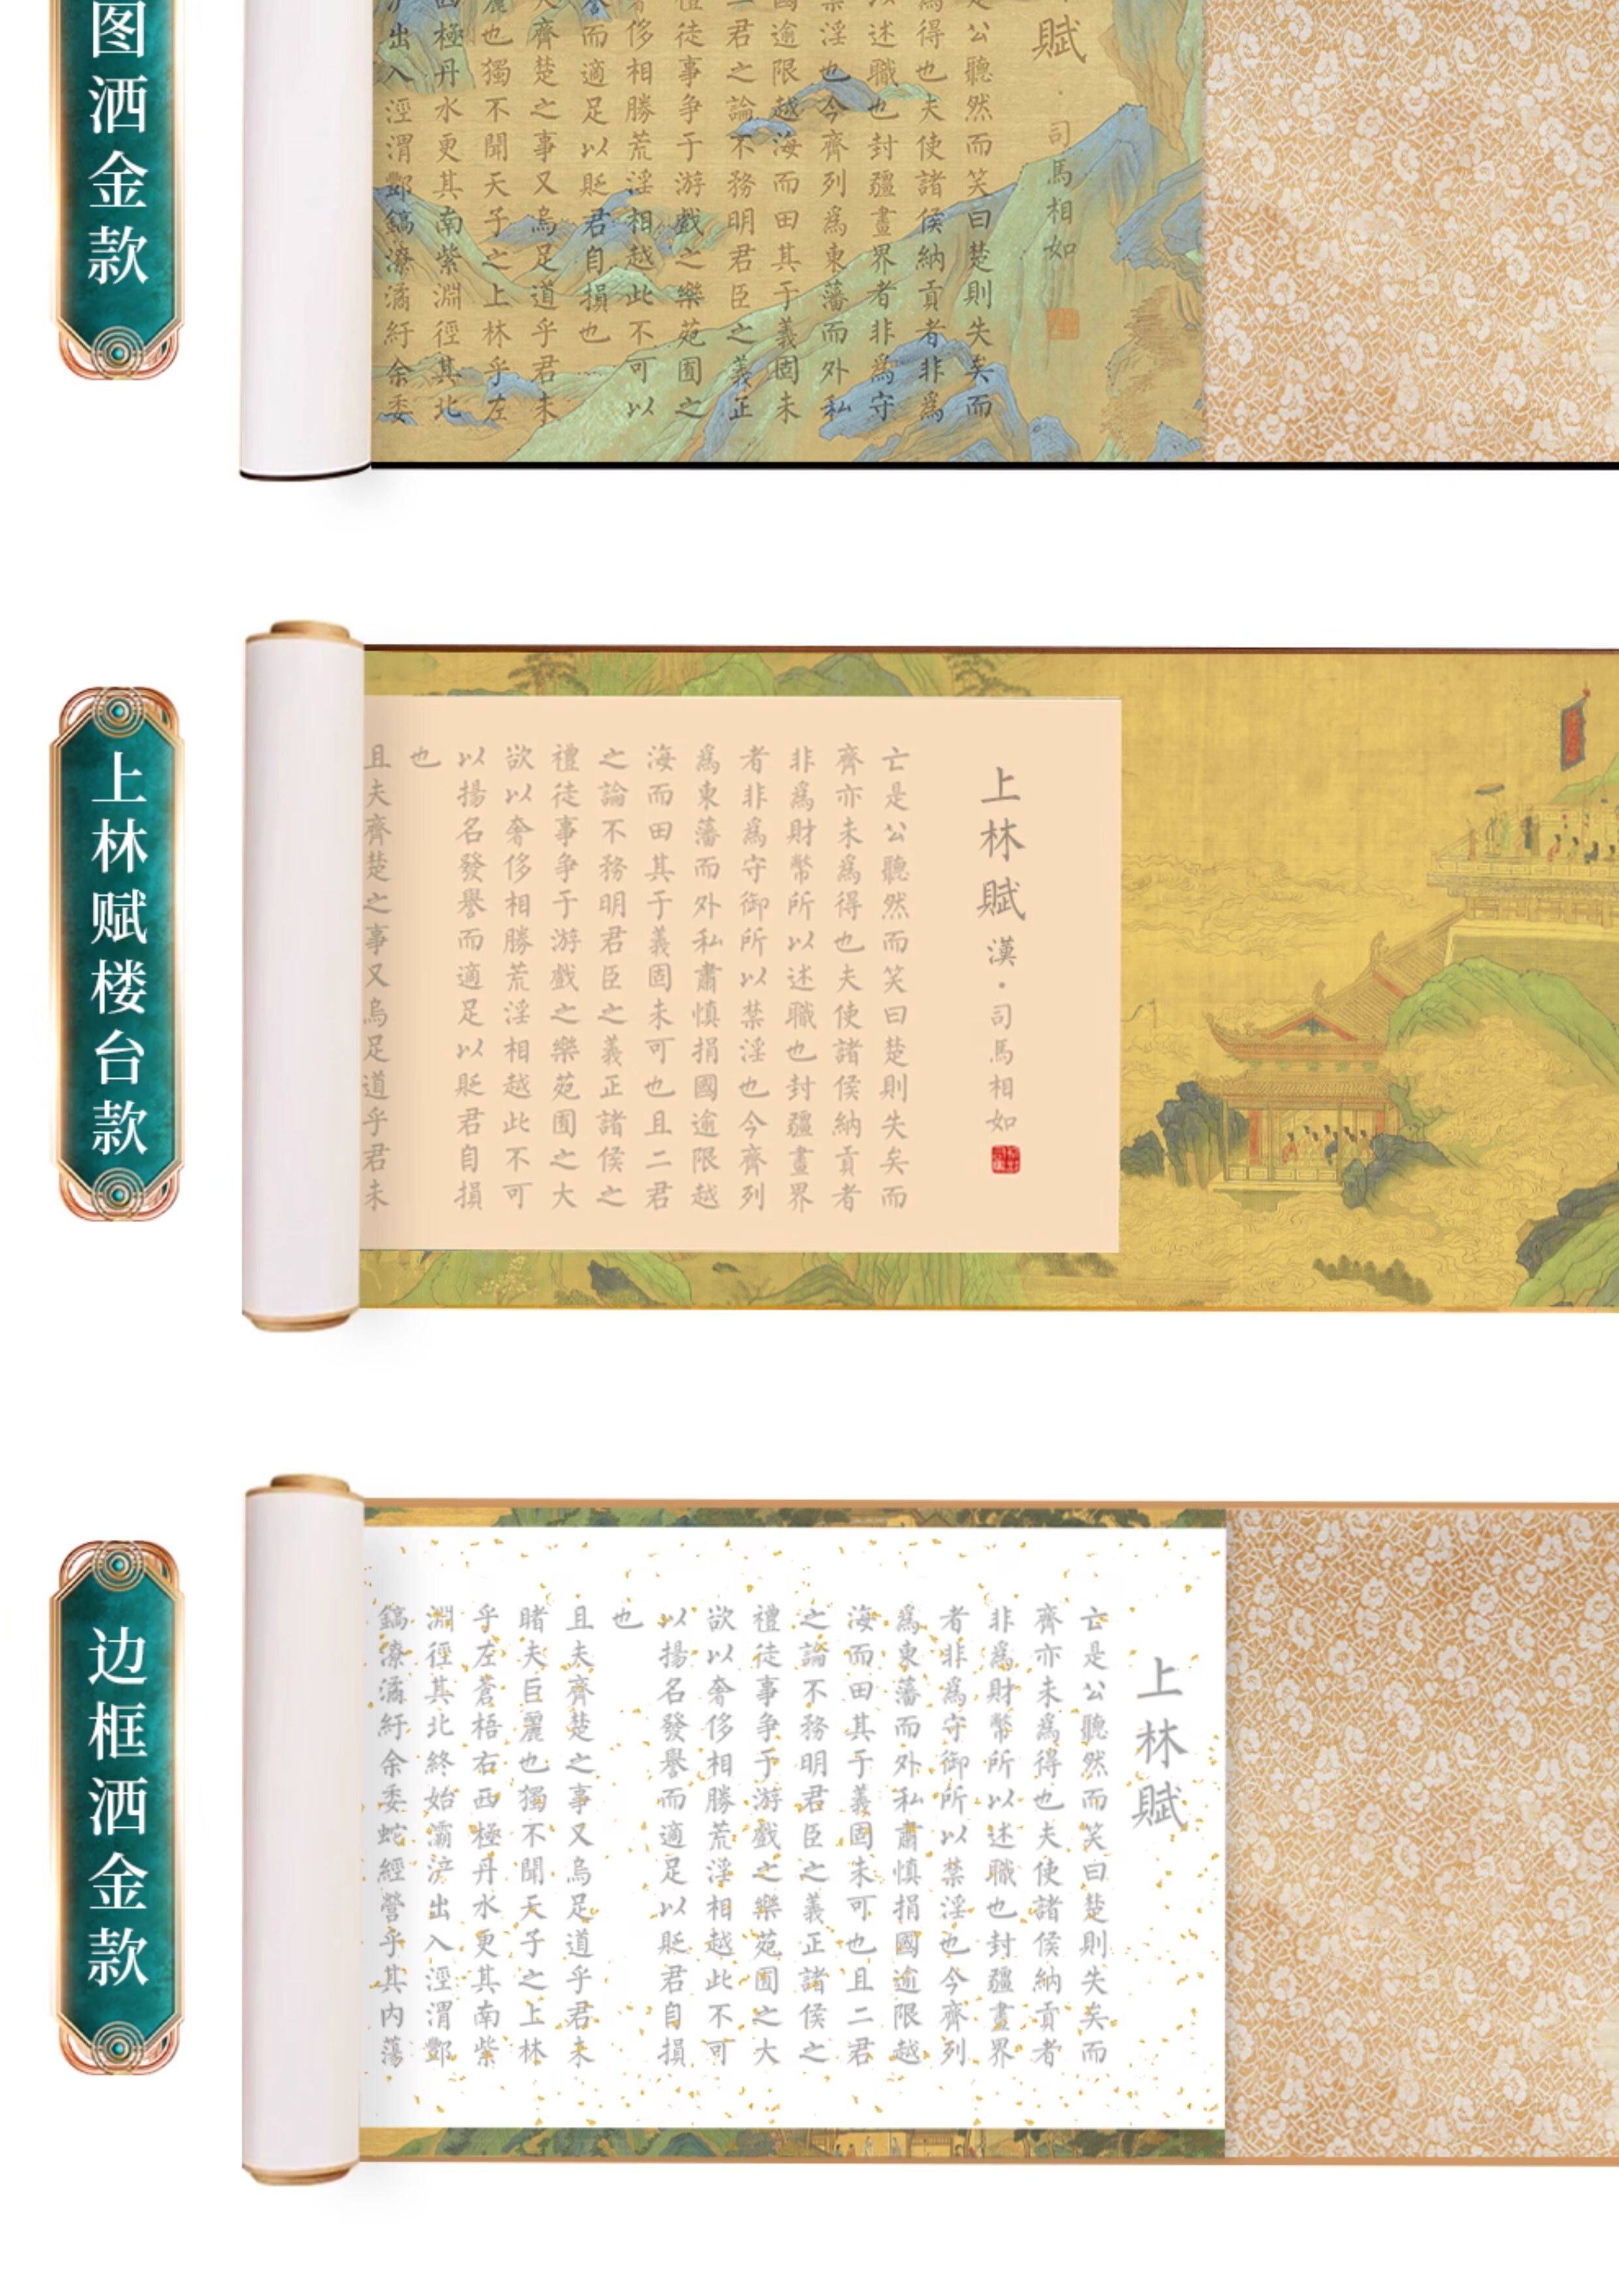 图洒金款
賦·司馬相如
是公聽然而笑曰楚則失矣而
爲得也夫使諸侯納貢者非爲
以述職也封疆畫界者非爲守
禁淫也今齊列爲東藩而外私
國逾限越海而田其于義固未
二君之論不務明君臣之義正
禮徒事争于游戲之樂苑囿之
侈相勝荒淫相越此不可以
譽而適足以貶君自損也
夫齊楚之事又烏足道乎君未
麗也獨不聞天子之上林乎左
西極丹水更其南紫淵徑其北
浐出入涇渭酆鎬潦潏紆余委
上林赋楼台款
上林賦 漢·司馬相如
亡是公聽然而笑曰楚則失矣而
齊亦未爲得也夫使諸侯納貢者
非爲財幣所以述職也封疆畫界
者非爲守御所以禁淫也今齊列
爲東藩而外私肅慎捐國逾限越
海而田其于義固未可也且二君
之論不務明君臣之義正諸侯之
禮徒事争于游戲之樂苑囿之大
欲以奢侈相勝荒淫相越此不可
以揚名發譽而適足以貶君自損
也
且夫齊楚之事又烏足道乎君未
边框洒金款
上林賦
亡是公聽然而笑曰楚則失矣而
齊亦未爲得也夫使諸侯納貢者
非爲財幣所以述職也封疆畫界
者非爲守御所以禁淫也今齊列
爲東藩而外私肅慎捐國逾限越
海而田其于義固未可也且二君
之論不務明君臣之義正諸侯之
禮徒事争于游戲之樂苑囿之大
欲以奢侈相勝荒淫相越此不可
以揚名發譽而適足以貶君自損
也
且夫齊楚之事又烏足道乎君未
睹夫巨麗也獨不聞天子之上林
乎左蒼梧右西極丹水更其南紫
淵徑其北終始灞浐出入涇渭酆
鎬潦潏紆余委蛇經營乎其内蕩